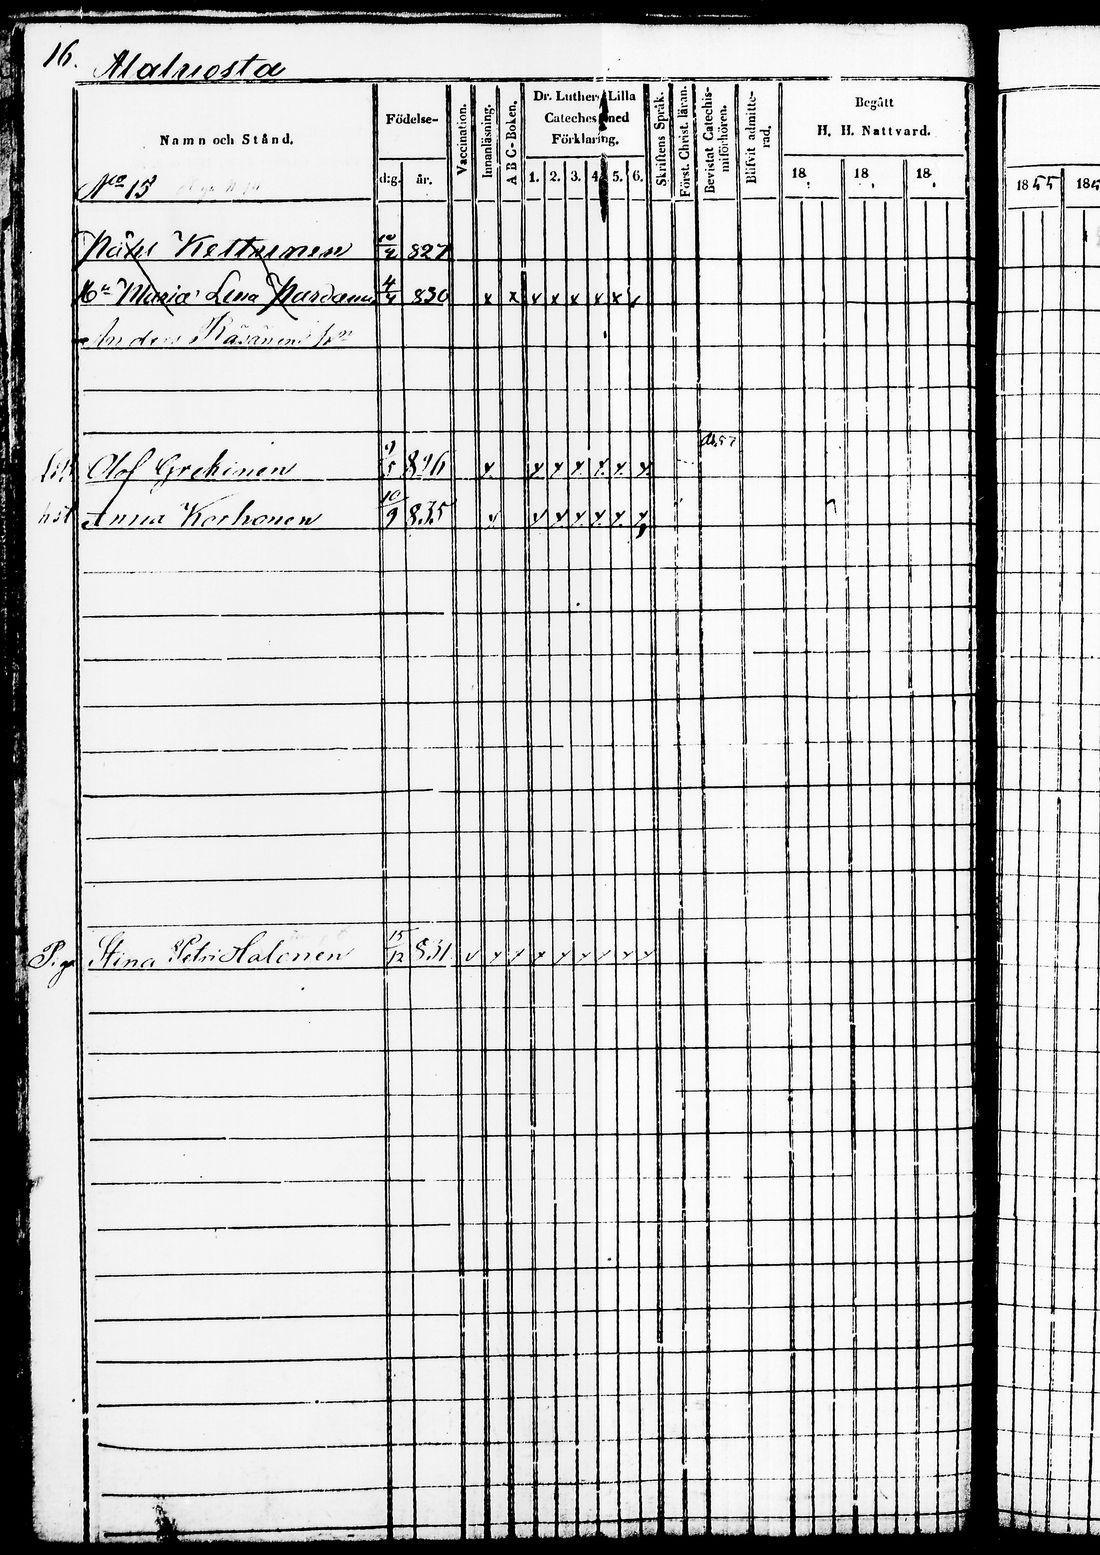 16. Alaluosta
Namn och Stånd.
Födelse-
d:g. år.
Vaccination.
Innanläsning.
A B C-Boken.
Dr. Luthers Lilla
Cateches med
Förklaring.
1. 2. 3. 4. 5. 6.
Skriftens Språk.
Först. Christ. läran.
Bevistat Catechis-
miförhören.
Blifvit admitte-
rad.
Begått
H. H. Nattvard.
18 18 18
1855 185
No 15
Påhl Kettunen 827
Hu Maria Lena Pardanen 4/4 830 x x x x x x x x
Anders Räsänens
57
Olof Grekinen 5 826 x x x x x x x
Anna Korhonen 10/9 835 x x x x x x x
Piga Stina Petri Halonen 15/12 831 x x x x x x x x x